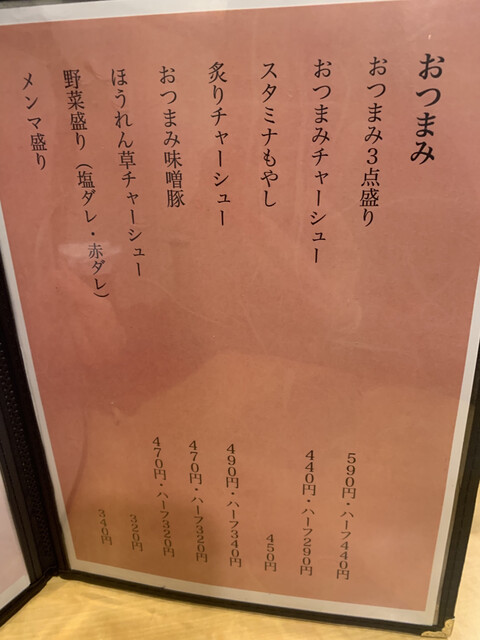 おつまみ
おつまみ３点盛り　590円・ハーフ440円
おつまみチャーシュー　440円・ハーフ290円
スタミナもやし　450円
炙りチャーシュー　490円・ハーフ340円
おつまみ味噌豚　470円・ハーフ320円
ほうれん草チャーシュー　470円・ハーフ320円
野菜盛り（塩ダレ・赤ダレ）　320円
メンマ盛り　340円